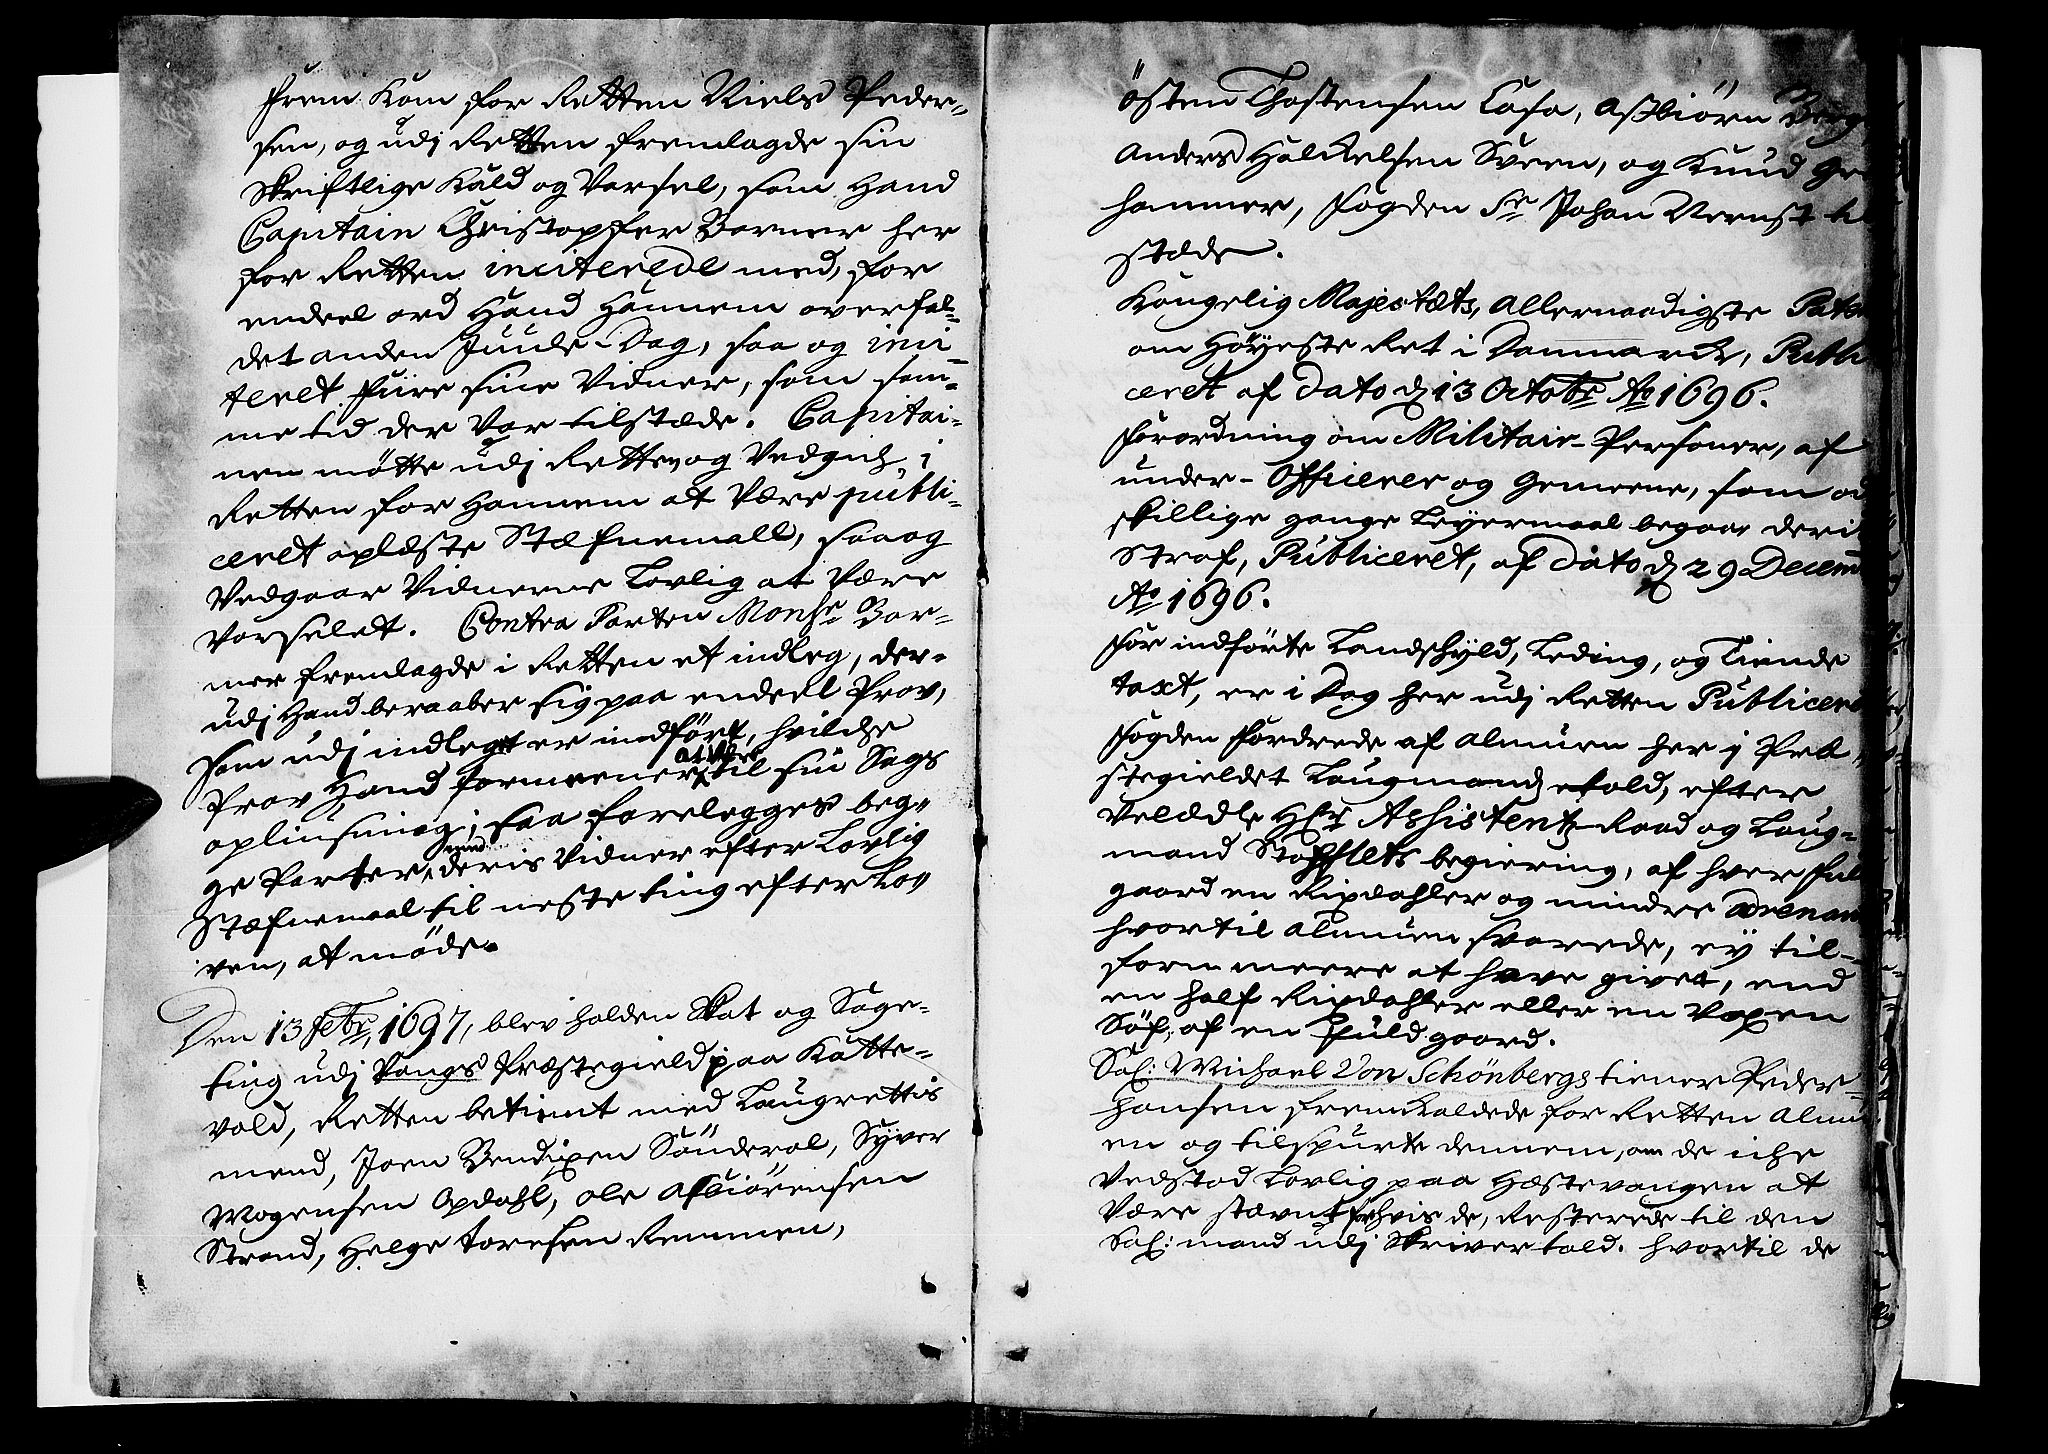 Frem Kom for Retten Niels Peder-
sen, og udj Retten fremlagde sin
Skriftlige Kald og Varsel, som Hand
Capitain Christopffer Barner her
for Retten inciterede med, for
endeel ord Hand Hannem overfal-
det anden Juule-Dag, saa og inci-
teret fiire sine Vidner, som sam-
me tid der var tilstæde. Capitai-
nen mötte udj Retten og Vedgick i
Retten for Hannem at Være publi-
ceret oplæste Stæfnemall, saa og
Vedgaar Vidnerne Lovlig at Være
Varselet. Contra Parten Monsr Bar-
ner fremlagde i Retten et indleg, der-
udj Hand beraaber sig paa endeel Prov,
som udj indleget er indfört, hvilcke
Prov Hand formeener at Være til sin Sags
oplinsning; saa forelegges beg-
ge Parter med deris Vidner efter Lovlig
Stæfnemaal til neste ting efter Lo-
ven, at möde.
Den 13 Febr. 1697, blev holden Skat og Sage-
ting udj Vangs Præstegield paa Katte-
vold, Retten betient med Laugrettis
mend, Joen Bendixen Sönderol, Syver
Mogensen Opdahl, ole Asbiörensen
Strand, Helge toresen Remmen,
östen Thostensen Casa, Asbiörn
Anders Halckelsen Sveen, og Knud
hammer, fogden Sr Johan Vernst
stæde.
Kongelig Majestæts, Allernaadigste
om Höyeste Ret i Danmarck, Publi
ceret af dato d 13 Octobr Ao 1696.
forordning om Militair-Personer, af
under-Officerer og Gemeene, som
skillige gange Leyermaal begaar
Straf, Publiceret, af dato d 29
Ao 1696.
for indförte Landschyld, Leding, og Tiende
taxt, er i Dag her udj Retten
fogden fordrede af almuen her i Præ-
stegieldet Laugmands told, efter
Velædle Hr Assistentz-Raad og Laug-
mand Stofflets begiering, af hver
gaard en Rixdahler og mindre
hvortil almuen svarede, ey til-
forn meere at have givet, end
en half Rixdahler eller en Voxen
Söf, af en fuld gaard.
Sal: Michael Von Schönbergs tiener Peder
Hansen fremkaldede for Retten
en og tilspurte dennem, om de iche
Vedstod Lovlig paa Hæstevangen at
Være stævnt for hvis de, Resterede til den
Sal: mand udj Skriver told. hvortil de